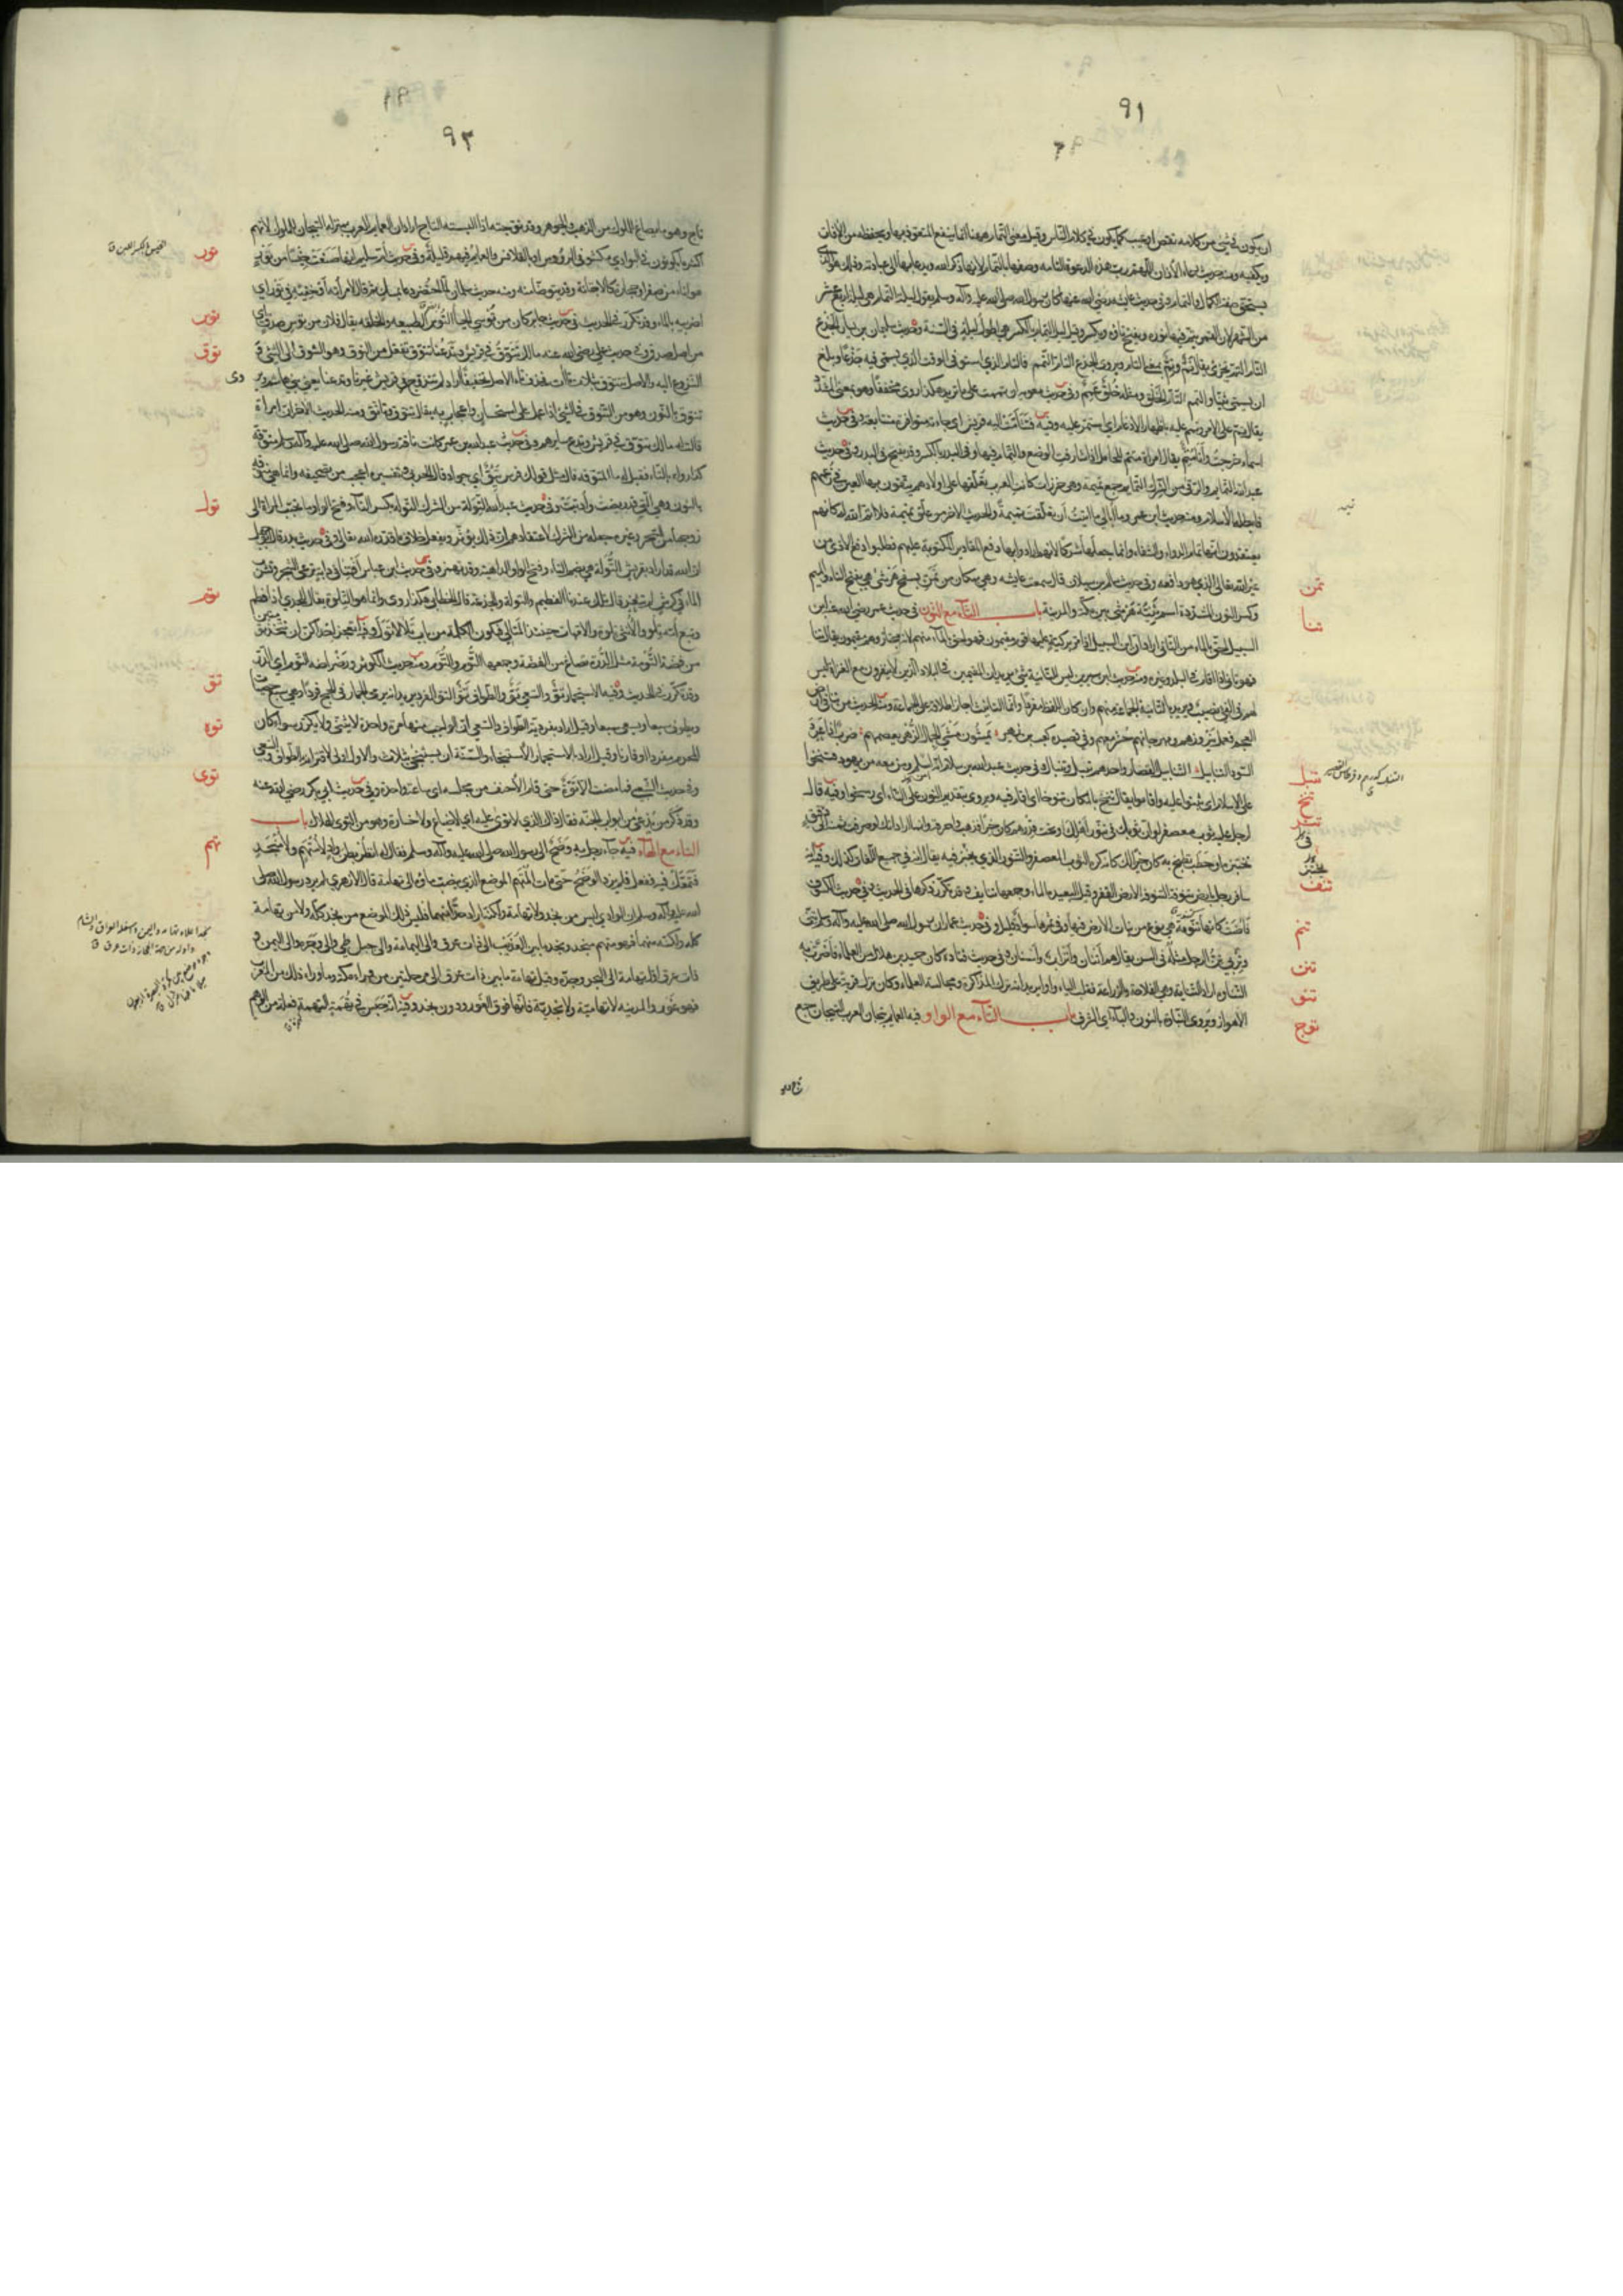 ٩١
ان يكون في شئ من كلامه نقص او عيب كما يكون في كلام الناس وقيل معنى التمام ههنا انها تنفع المتعوذ بها وتحفظه من الآفات
وتكفيه ومنه حديث دعاء الأذان اللهم رب هذه الدعوة التامة وصفها بالتمام لانها ذكر الله ويدعا بها الى عبادته وذلك هو الذي
يستحق صفة الكمال والتمام وفي حديث عايشة رضي الله عنها كان رسول الله صلى الله عليه وآله وسلم يقوم ليلة التمام هي ليلة اربع عشر
من الشهر لان القمر يتم فيها نوره وتفتح تاؤه وتكسر وقيل ليل التمام بالكسر هي اطول ليلة في السنة وفي حديث سليمان بن يسار الجذع
التام التم يجزئ يقال تم وتم بمعنى التام ويروى الجذع التام التمم فالتام الذي استوفى الوقت الذي يسمى فيه جذعا وبلغ
ان يسمى ثنيا والتمم التام الخلق ومثله خلق عمم وفي حديث معوية ان تممت على ما تريد هكذا روي مخففا وهو بمعنى المشدد
يقال تم على الامر وتمم عليه باظهار الادغام اي استمر عليه وفيه فتتامت اليه قريش اي جاءته متوافرة متتابعة وفي حديث
اسماء خرجت وانا متم يقال امراة متم للحامل اذا شارفت الوضع والتمام فيها وفي البدر بالكسر وقد تفتح في البدر وفي حديث
عبد الله التمايم والرقى من الشرك التمايم جمع تميمة وهي خرزات كانت العرب تعلقها على اولادهم يتقون بها العين في زعمهم
فابطلها الاسلام ومنه حديث ابن عمر وما ابالي ما اتيت ان تعلقت تميمة والحديث الاخر من علق تميمة فلا اتم الله له كانهم
يعتقدون انها تمام الدواء والشفاء وانما جعلها شركا لانهم ارادوا بها دفع المقادير المكتوبة عليهم فطلبوا دفع الاذى من
غير الله تعالى الذي هو دافعه وفي حديث سالم بن سبلان قال سمعت عايشه وهي بمكان من تمن بسفح هرشى هي بفتح التاء والميم
وكسر النون المشددة اسم ثنية هرشى بين مكة والمدينة باب التاء مع النون في حديث عمر رضي الله عنه ابن
السبيل احق بالماء من التاني اراد ان ابن السبيل اذا مر بركية عليها قوم مقيمون فهو احق بالماء منهم لانه مجتاز وهم مقيمون يقال تنا
فهو تاني اذا اقام في البلد وغيره ومنه حديث ابن سيرين ليس للتانية شئ يريد ان المقيمين في البلاد الذين لا ينفرون مع الغزاة ليس
لهم في الفئ نصيب ويريد بالتانية الجماعة منهم وان كان اللفظ مفردا وانما التانيث اجاز اطلاقه على الجماعة ومنه الحديث من تنا في ارض
العجم فعمل نيروزهم ومهرجانهم حشر معهم وفي قصيد كعب بن زهير يمشون مشي الجمال الزهر يعصمهم ضرب اذا عرد
السود التنابيل التنابيل القصار واحدهم تنبل وتنبال في حديث عبد الله بن سلام انه اسلم ومن معه من يهود فتنخوا
على الاسلام اي ثبتوا عليه واقاموا يقال تنخ بالمكان تنوخا اي اقام فيه ويروى بتقديم النون على التاء اي رسخوا وفيه قال
لرجل عليه ثوب معصفر لو ان ثوبك في تنور اهلك او تحت قدرهم كان خيرا فذهب فاحرقه وانما اراد انك لو صرفت ثمنه الى دقيق
تختبزه او حطب تطبخ به كان خيرا لك كانه كره الثوب المعصفر والتنور الذي يخبز فيه يقال انه في جميع اللغات كذلك وفيه انه
سافر رجل بارض تنوفة التنوفة الارض القفر وقيل البعيدة الماء وجمعها تنايف وقد تكرر ذكرها في الحديث وفي حديث الكسوف
فآضت كانها تنومة هي نوع من نبات الارض فيها وفي ثمرها سواد قليل وفي حديث عمار ان رسول الله صلى الله عليه وآله وسلم تني
وتربي تن الرجل مثله في السن يقال هم اتنان واتراب واسنان وفي حديث قتادة كان حميد بن هلال من العلماء فاضرت به
التناوة اراد التناية وهي الفلاحة والزراعة فقلب الياء واوا يريد انه ترك المذاكرة ومجالسة العلماء وكان نزل قرية على طريق
الاهواز ويروى النباوة بالنون والباء اي الشرف باب التاء مع الواو فيه العمايم تيجان العرب التيجان جمع
تمن
تنا
تنبل
تنخ
تنر
تنف
تنم
تنن
تنو
توج
٩٢
تاج وهو ما يصاغ للملوك من الذهب والجوهر وقد توجته اذا البسته التاج اراد ان العمايم للعرب بمنزلة التيجان للملوك لانهم
اكثر ما يكونون في البوادي مكشوفي الرؤوس او بالقلانس والعمايم فيهم قليلة وفي حديث ام سليم انها صنعت حيسا في تور
هو اناء من صفر او حجارة كالاجانة وقد يتوضا منه ومنه حديث سلمان لما احتضر دعا بمسك ثم قال لامراته اوخفيه في تور اي
اضربيه بالماء وقد تكرر في الحديث في حديث جابر كان من توسي الحياء التوس الطبيعة والخلقة يقال فلان من توس صدق اي
من اصل صدق وفي حديث علي رضي الله عنه مالك تتوق في قريش وتدعنا تتوق تفعل من التوق وهو الشوق الى الشئ و
النزوع اليه والاصل تتتوق بثلث تاات فحذف تاء الاصل تخفيفا اراد لم تتزوج في قريش غيرنا وتدعنا يعني بني هاشم ويروى
تنوق بالنون وهو من التنوق في الشئ اذا عمل على استحسان واعجاب به يقال تنوق وتانق ومنه الحديث الاخر ان امراة
قالت له مالك تتوق في قريش وتدع سايرهم وفي حديث عبد الله بن عمر كانت ناقة رسول الله صلى الله عليه وآله وسلم متوقة
كذا رواه بالتاء فقيل له ما المتوقة قال مثل قولك فرس تئق اي جواد قال الحربي وتفسيره اعجب من تصحيفه وانما هي منوقة
بالنون وهي التي قد ريضت وادبت وفي حديث عبد الله التولة من الشرك التولة بكسر التاء وفتح الواو ما يحبب المراة الى
زوجها من السحر وغيره جعله من الشرك لاعتقادهم ان ذلك يؤثر ويفعل خلاف ما قدره الله تعالى وفي حديث بدر قال ابو جهل
ان الله قد اراد بقريش التولة هي بضم التاء وفتح الواو الداهية وقد تهمز وفي حديث ابن عباس افتنا في دابة ترعى الشجر وتشرب
الماء في كرش لم تثغر قال تلك عندنا الفطيم والتولة والجذعة قال الخطابي هكذا روي وانما هو التلوة يقال للجدي اذا فطم
وتبع امه تلو والانثى تلوة والامهات حينئذ المتالي فتكون الكلمة من باب تلا لا تول وفيه اتعجز احداكن ان تتخذ تومتين
من فضة التومة مثل الدرة تصاغ من الفضة وجمعها التوم والتوم ومنه حديث الكوثر ورضراضه التوم اي الدر
وقد تكرر في الحديث وفيه الاستجمار تو والسعي تو والطواف تو التو الفرد يريد انه يرمي الجمار في الحج فردا وهي سبع حصيات
ويطوف سبعا ويسعى سبعا وقيل اراد بفردية الطواف والسعي ان الواجب منهما مرة واحدة لا يثنى ولا يكرر سواء كان
المحرم مفردا او قارنا وقيل اراد بالاستجمار الاستنجاء والسنة ان يستنجي بثلاث والاول اولى لاقترانه بالطواف والسعي
وفي حديث الشعبي فما مضت الا توة حتى قام الاحنف من مجلسه اي ساعة واحدة وفي حديث ابي بكر رضي الله عنه
وقد ذكر من يدعى من ابواب الجنة فقال ذاك الذي لا توى عليه اي لا ضياع ولا خسارة وهو من التوى الهلاك باب
التاء مع الهاء فيه جاء رجل به وضح الى رسول الله صلى الله عليه وآله وسلم فقال له انظر بطن واد لا منجد ولا متهم
فتمعك فيه ففعل فلم يزد الوضح حتى مات المتهم الموضع الذي ينصب ماؤه الى تهامة قال الازهري لم يرد رسول الله صلى
الله عليه وآله وسلم ان الوادي ليس من نجد ولا تهامة ولكنه اراد حدا منهما فليس ذلك الموضع من نجد كله ولا من تهامة
كله ولكنه منهما فهو متهم منجد ونجد ما بين العذيب الى ذات عرق والى اليمامة والى جبلي طي والى وجرة والى اليمن و
ذات عرق اول تهامة الى البحر وجدة وقيل تهامة ما بين ذات عرق الى مرحلتين من وراء مكة وما وراء ذلك من المغرب
فهو غور والمدينة لا تهامية ولا نجدية فانها فوق الغور ودون نجد وفيه انه حبس في تهمة التهمة فعلة من الوهم
تور
توس
توق
تول
توم
توه
توى
تهم